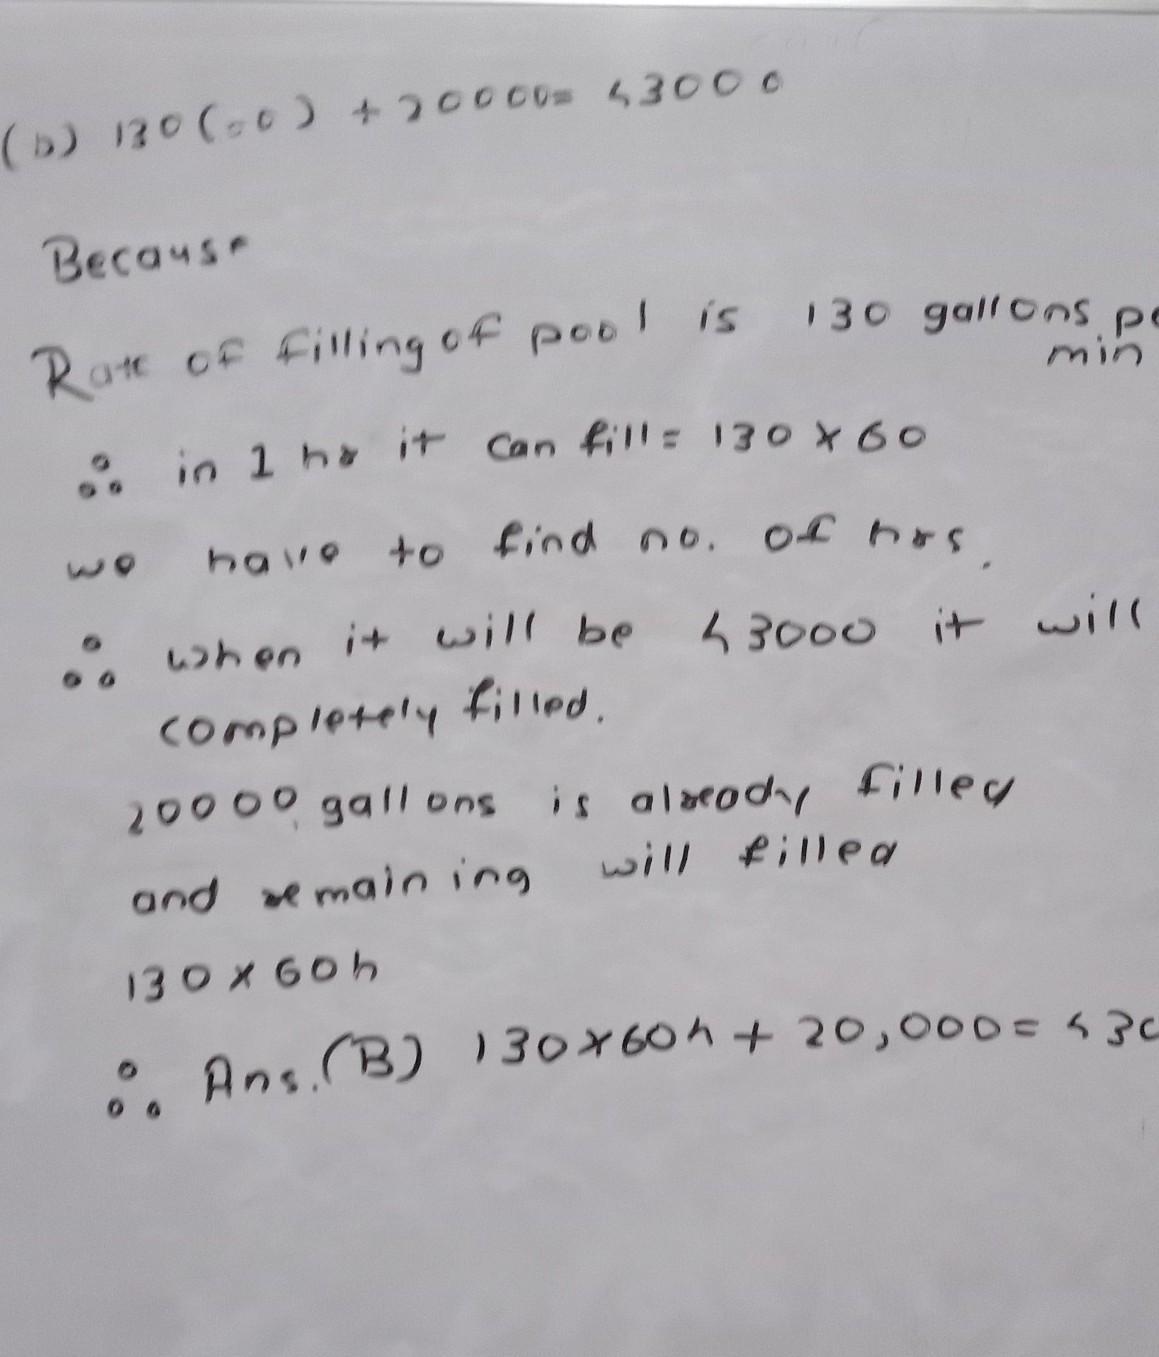 (b) 130(60) + 20000= 43000
Because
Rate of filling of pool is 130 gallons pe
min
∴ in 1 hr it can fill= 130 x 60
we have to find no. of hrs.
∴ when it will be 43000 it will
completely filled.
20000 gallons is already filled
and remaining will filled
130 x 60h
∴ Ans. (B) 130x60h + 20,000= 430